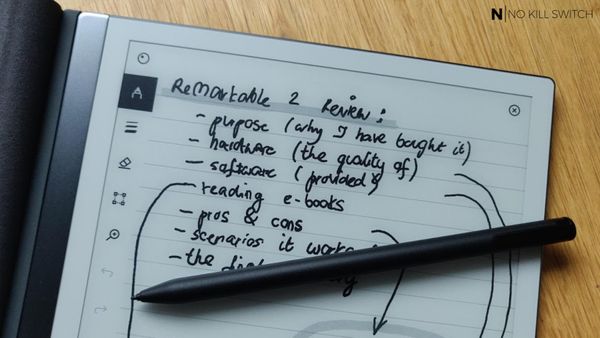 NO KILL SWITCH
ReMarkable 2 Review:
- purpose (why I have bought it)
- hardware (the quality of)
- software (provided)
- reading e-books
- pros & cons
- scenarios it works
- the